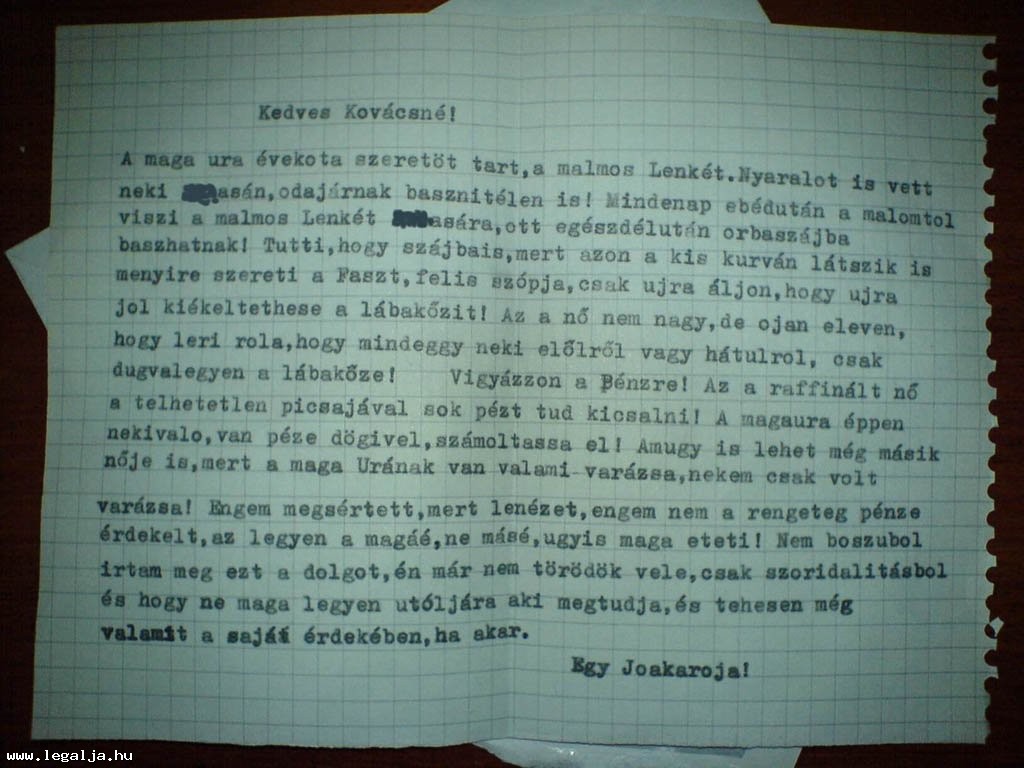 Kedves Kovácsné!
A maga ura évekota szeretöt tart,a malmos Lenkét.Nyaralot is vett
neki asán,odajárnak basznitélen is! Mindenap ebédután a malomtol
viszi a malmos Lenkét asára,ott egészdélután orbaszájba
baszhatnak! Tutti,hogy szájbais,mert azon a kis kurván látszik is
menyire szereti a Faszt,felis szópja,csak ujra áljon,hogy ujra
jol kiékeltethese a lábakőzit! Az a nő nem nagy,de ojan eleven,
hogy leri rola,hogy mindeggy neki előlről vagy hátulrol, csak
dugvalegyen a lábakőze! Vigyázzon a Pénzre! Az a raffinált nő
a telhetetlen picsajával sok pézt tud kicsalni! A magaura éppen
nekivalo,van péze dögivel,számoltassa el! Amugy is lehet még másik
nője is,mert a maga Urának van valami varázsa,nekem csak volt
varázsa! Engem megsértett,mert lenézet,engem nem a rengeteg pénze
érdekelt,az legyen a magáé,ne másé,ugyis maga eteti! Nem boszubol
irtam meg ezt a dolgot,én már nem törödök vele,csak szoridalitásbol
és hogy ne maga legyen utóljára aki megtudja,és tehesen még
valamit a saját érdekében,ha akar.
Egy Joakaroja!
www.legalja.hu